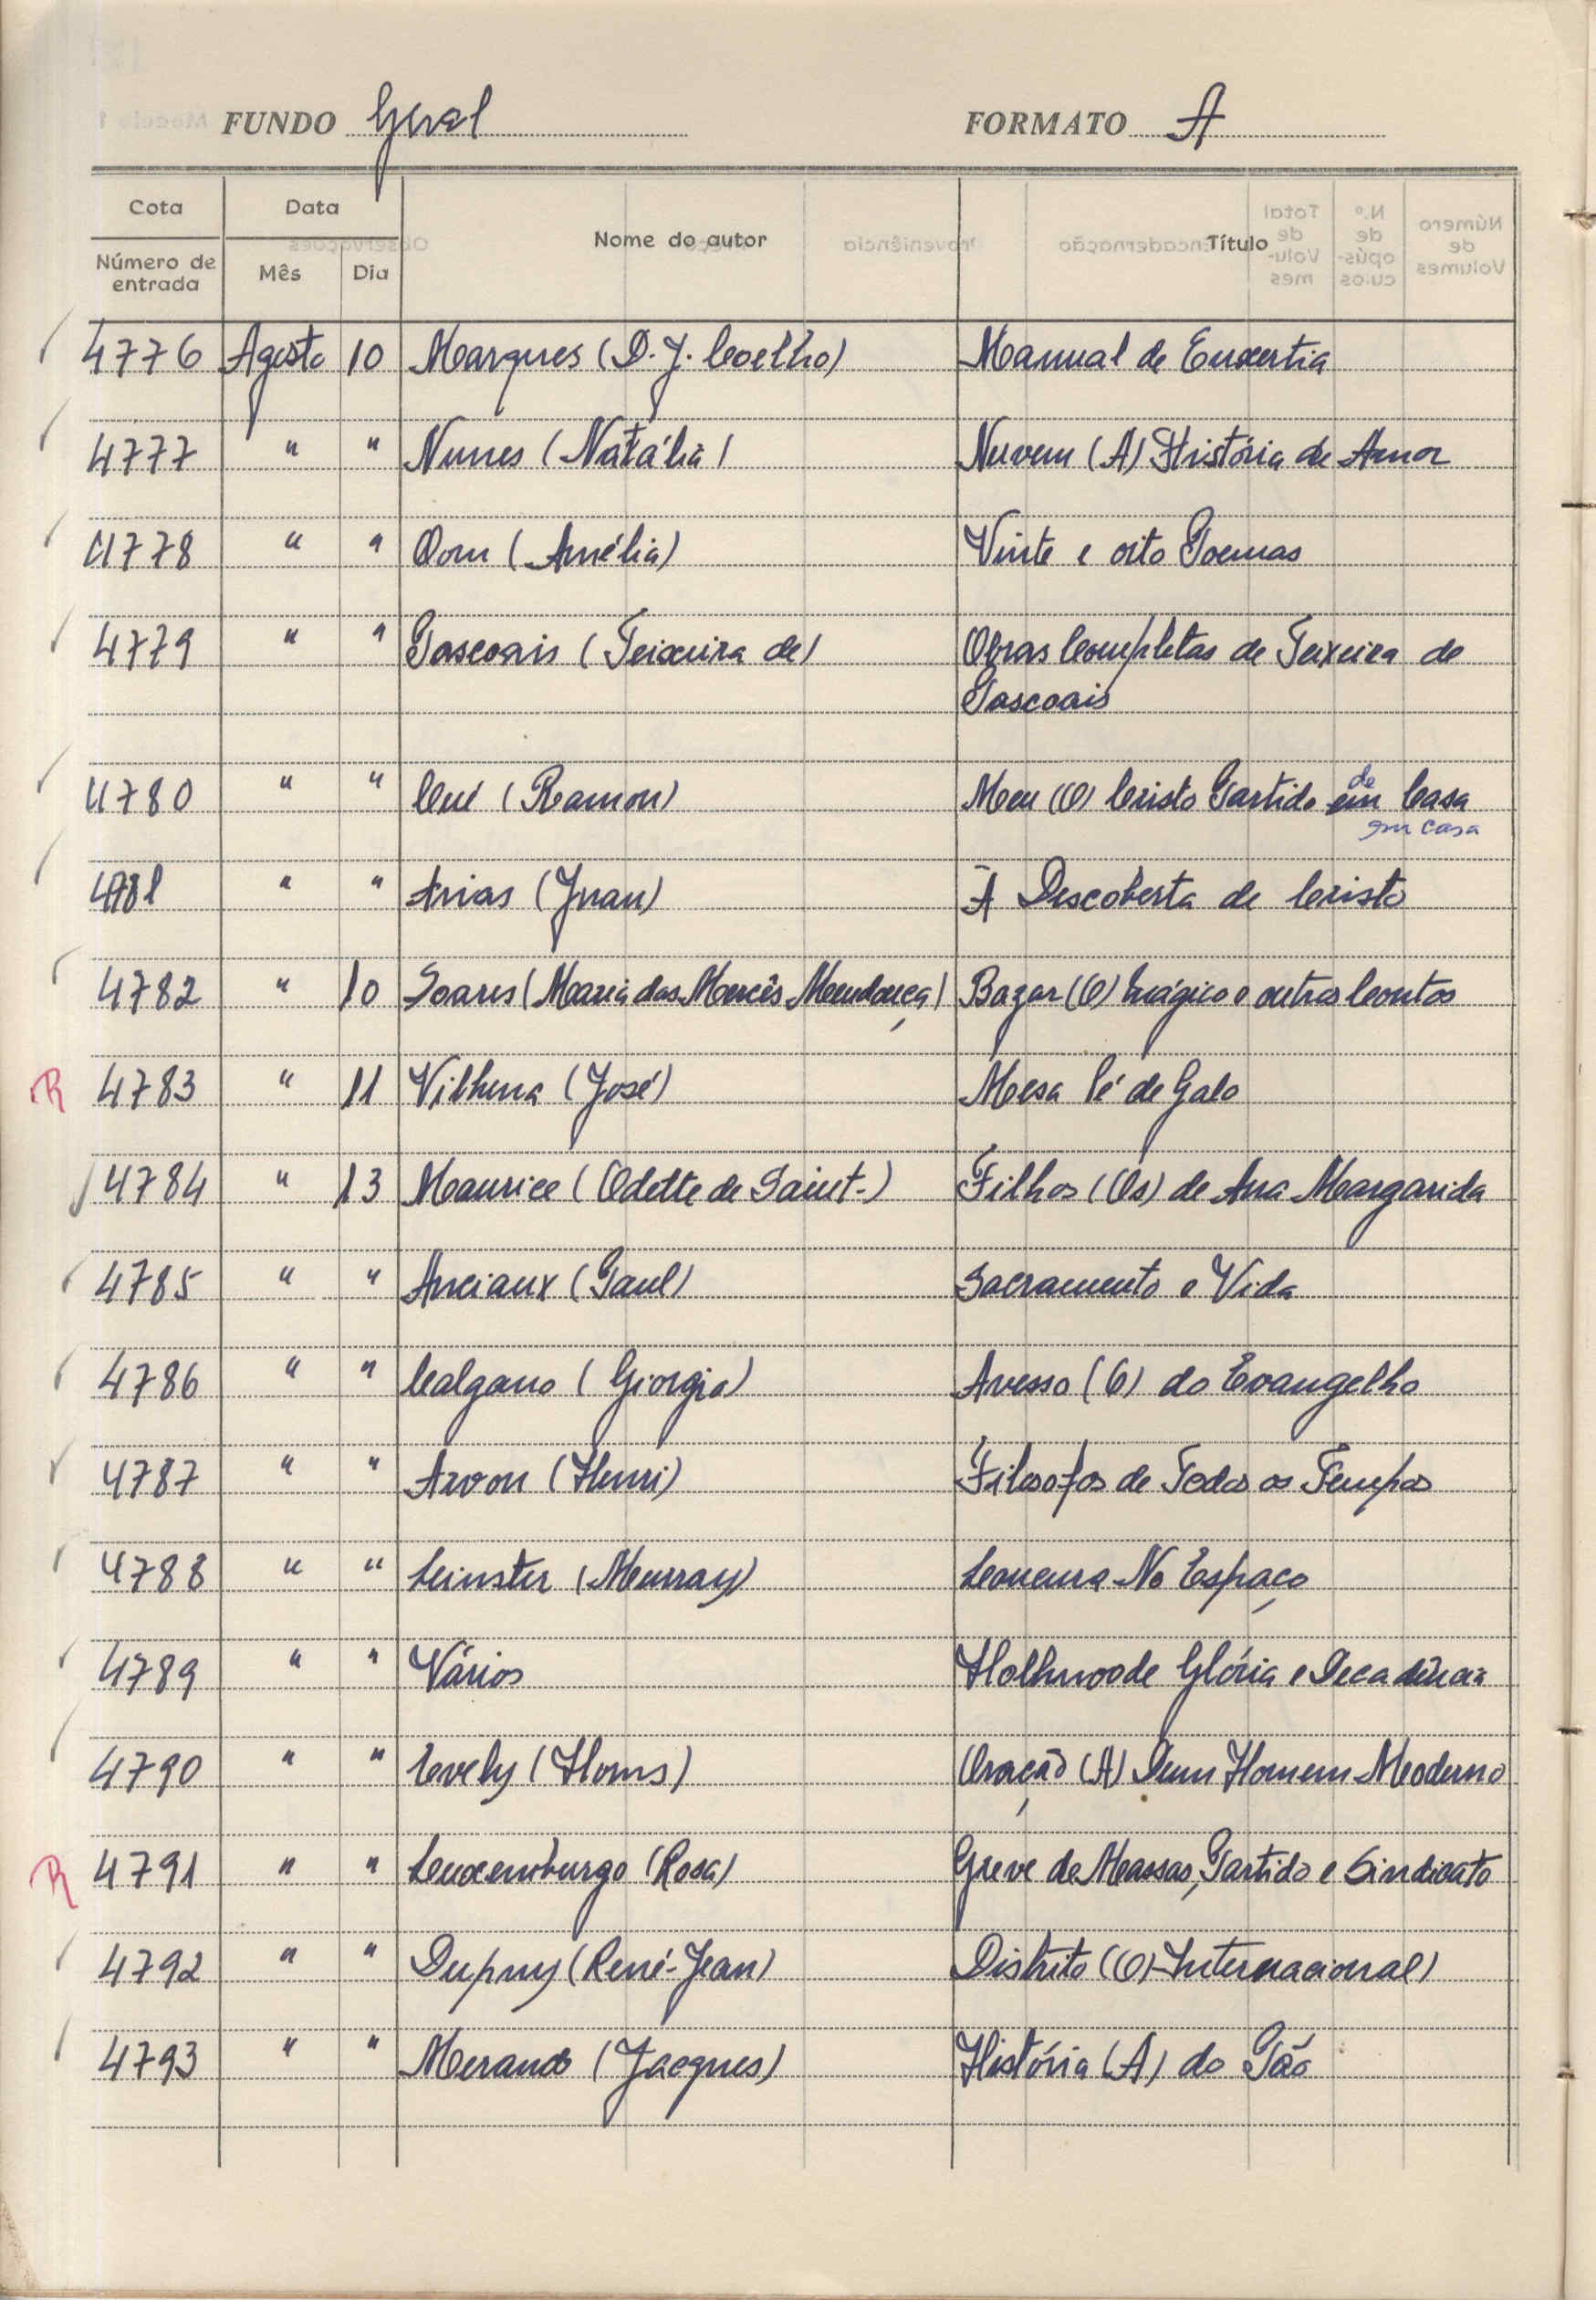 FUNDO Geral FORMATO A
Cota Data Nome do autor Título
Número de entrada Mês Dia
4776 Agosto 10 Marques (D. J. Coelho) Manual de Enxertia
4777 " " Nunes (Natália) Nuvem (A) História de Amor
4778 " " Dom (Amélia) Vinte e oito Poemas
4779 " " Pascoais (Teixeira de) Obras Completas de Teixeira de
Pascoais
4780 " " Cué (Ramon) Meu (O) Cristo Partido de em Casa
em casa
4781 " " Arias (Juan) À Descoberta de Cristo
4782 " 10 Soares (Maria das Mercês Mendonça) Bazar (O) Mágico e outros Contos
R 4783 " 11 Vilhena (José) Mesa Pé de Galo
4784 " 13 Maurice (Odette de Saint-) Filhos (Os) de Ana Margarida
4785 " " Anciaux (Paul) Sacramento e Vida
4786 " " Calgano (Giorgio) Avesso (O) do Evangelho
4787 " " Arvon (Henri) Filosofos de Todos os Tempos
4788 " " Leinster (Murray) Loucura No Espaço
4789 " " Vários Hollywoode Glória e Decadência
4790 " " Evely (Louis) Oração (A) Dum Homem Moderno
R 4791 " " Luxemburgo (Rosa) Greve de Massas, Partido e Sindicato
4792 " " Dupuy (René-Jean) Distrito (O) Internacional)
4793 " " (Jacques) História (A) do Pão